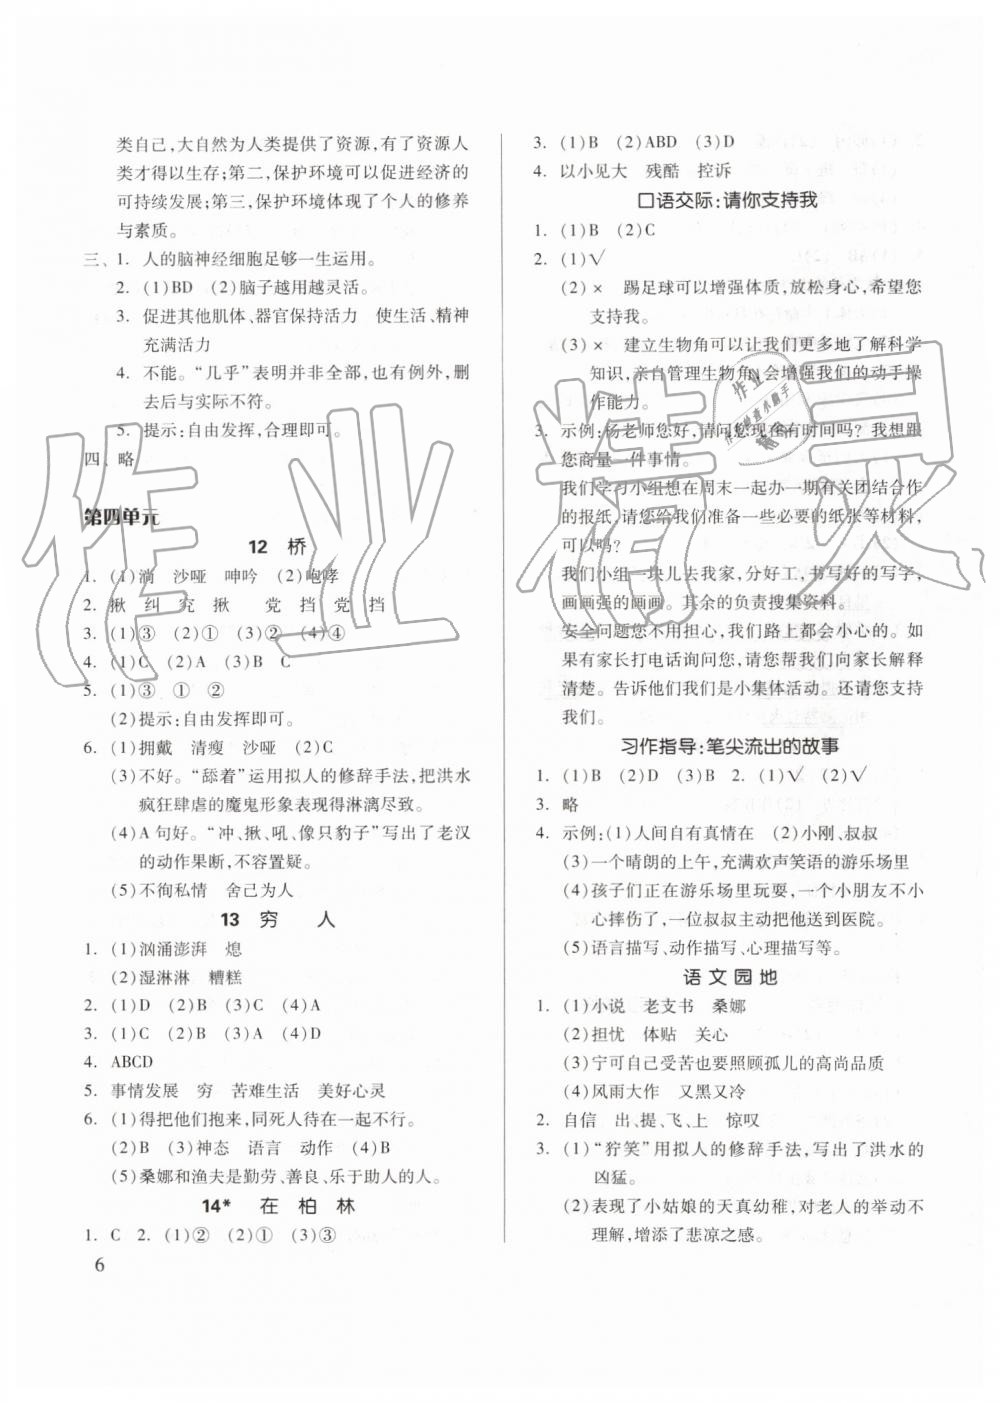 类自己,大自然为人类提供了资源,有了资源人
类才得以生存;第二,保护环境可以促进经济的
可持续发展;第三,保护环境体现了个人的修养
与素质。
三、1. 人的脑神经细胞足够一生运用。
2. (1)BD (2)脑子越用越灵活。
3. 促进其他肌体、器官保持活力 使生活、精神
充满活力
4. 不能。“几乎”表明并非全部,也有例外,删
去后与实际不符。
5. 提示:自由发挥,合理即可。
四、略
第四单元
12 桥
1. (1)淌 沙哑 呻吟 (2)咆哮
2. 揪 纠 究 揪 党 挡 党 挡
3. (1)③ (2)① (3)② (4)④
4. (1)C (2)A (3)B C
5. (1)③ ① ②
(2)提示:自由发挥即可。
6. (1)拥戴 清瘦 沙哑 (2)C
(3)不好。“舔着”运用拟人的修辞手法,把洪水
疯狂肆虐的魔鬼形象表现得淋漓尽致。
(4)A句好。“冲、揪、吼、像只豹子”写出了老汉
的动作果断,不容置疑。
(5)不徇私情 舍己为人
13 穷 人
1. (1)汹涌澎湃 熄
(2)湿淋淋 糟糕
2. (1)D (2)B (3)C (4)A
3. (1)C (2)B (3)A (4)D
4. ABCD
5. 事情发展 穷 苦难生活 美好心灵
6. (1)得把他们抱来,同死人待在一起不行。
(2)B (3)神态 语言 动作 (4)B
(5)桑娜和渔夫是勤劳、善良、乐于助人的人。
14* 在 柏 林
1. C 2. (1)② (2)① (3)③
6
3. (1)B (2)ABD (3)D
4. 以小见大 残酷 控诉
口语交际:请你支持我
1. (1)B (2)C
2. (1)√
(2)× 踢足球可以增强体质,放松身心,希望您
支持我。
(3)× 建立生物角可以让我们更多地了解科学
知识,亲自管理生物角,会增强我们的动手操
作能力。
3. 示例:杨老师您好,请问您现在有时间吗?我想跟
您商量一件事情。
我们学习小组想在周末一起办一期有关团结合作
的报纸,请您给我们准备一些必要的纸张等材料,
可以吗?
我们小组一块儿去我家,分好工,书写好的写字,
画画强的画画。其余的负责搜集资料。
安全问题您不用担心,我们路上都会小心的。如
果有家长打电话询问您,请您帮我们向家长解释
清楚。告诉他们我们是小集体活动。还请您支持
我们。
习作指导:笔尖流出的故事
1. (1)B (2)D (3)B 2. (1)√ (2)√
3. 略
4. 示例:(1)人间自有真情在 (2)小刚、叔叔
(3)一个晴朗的上午,充满欢声笑语的游乐场里
(4)孩子们正在游乐场里玩耍,一个小朋友不小
心摔伤了,一位叔叔主动把他送到医院。
(5)语言描写、动作描写、心理描写等。
语文园地
1. (1)小说 老支书 桑娜
(2)担忧 体贴 关心
(3)宁可自己受苦也要照顾孤儿的高尚品质
(4)风雨大作 又黑又冷
2. 自信 出、提、飞、上 惊叹
3. (1)“狞笑”用拟人的修辞手法,写出了洪水的
凶猛。
(2)表现了小姑娘的天真幼稚,对老人的举动不
理解,增添了悲凉之感。
作业精灵